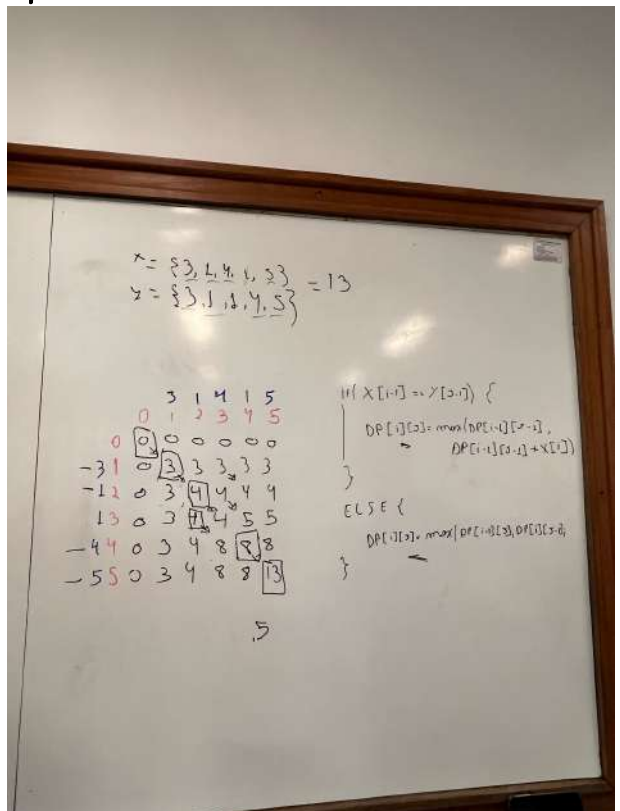 x = {3, 1, 4, 1, 5}
y = {3, 1, 1, 4, 5} = 13
3 1 4 1 5
0 1 2 3 4 5
0 0 0 0 0 0 0
-3 1 0 3 3 3 3 3
-1 2 0 3 4 4 4 4
1 3 0 3 4 4 5 5
-4 4 0 3 4 8 8 8
-5 5 0 3 4 8 8 13
,5
if( X[i-1] == Y[J-1]) {
DP[i][J] = max(DP[i-1][J-1],
DP[i-1][J-1]+X[i])
}
ELSE {
DP[i][J] = max(DP[i-1][J], DP[i][J-1],
}